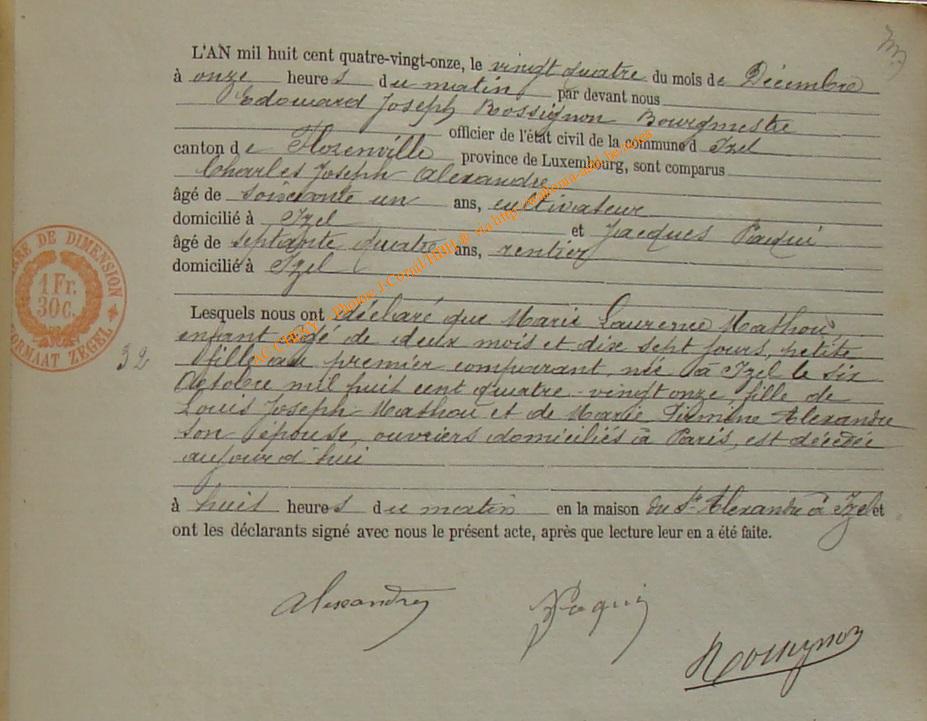 L'AN mil huit cent quatre-vingt-onze, le vingt quatre du mois de Décembre
à onze heures du matin par devant nous
Edouard Joseph Rossignon Bourgmestre
officier de l'état civil de la commune d Izel
canton de Florenville province de Luxembourg, sont comparus
Charles Joseph Alexandre
âgé de soixante un ans, cultivateur
domicilié à Izel et Jacques Paqui
âgé de septante quatre ans, rentier
domicilié à Izel
Lesquels nous ont déclaré que Marie Laurence Mathou
enfant âgé de deux mois et dix sept jours, petite
fille au premier comparant, née à Izel le six
Octobre mil huit cent quatre-vingt onze, fille de
Louis Joseph Mathou et de Marie Firmine Alexandre
son épouse, ouvriers domiciliés à Paris, est décédée
aujourd'hui
à huit heures du matin en la maison du Sr Alexandre à Izel et
ont les déclarants signé avec nous le présent acte, après que lecture leur en a été faite.
Alexandre
J Paqui
Rossignon
DE DIMENSION
1 Fr.
30 c.
FORMAAT ZEGEL
32